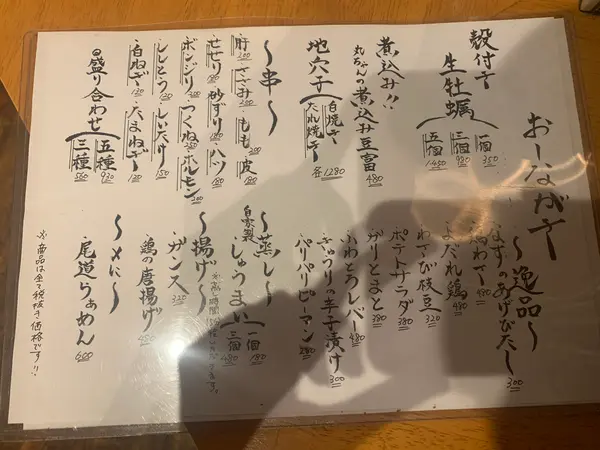 おーながき
殻付き
生牡蠣
一個 350
三個 980
五個 1,450
煮込み!!
丸ちゃんの煮込み豆富 480
地穴子
白焼き
たれ焼き
各1280
〜串〜
肝 200
ささみ 200
もも 200
皮 180
せせり
砂ずり 180
ハツ 180
ボンジリ 200
つくね
ホルモン 200
ししとう 130
しいたけ 150
白ねぎ 130
たまねぎ 130
◎盛り合わせ
五種 930
三種 560
〜逸品〜
なすのあげびたし 300
480
よだれ鶏 480
わさび枝豆 320
ポテトサラダ 380
がりとまと 380
ふわとろレバー 480
きゅうりの辛子漬け 300
パリパリピーマン 280
〜蒸し〜
自家製
しゅうまい
一個 180
三個 480
〜揚げ〜
ガンス 320
鶏の唐揚げ
〜〆に〜
尾道らぁめん 600
※商品は全て税抜き価格です!!